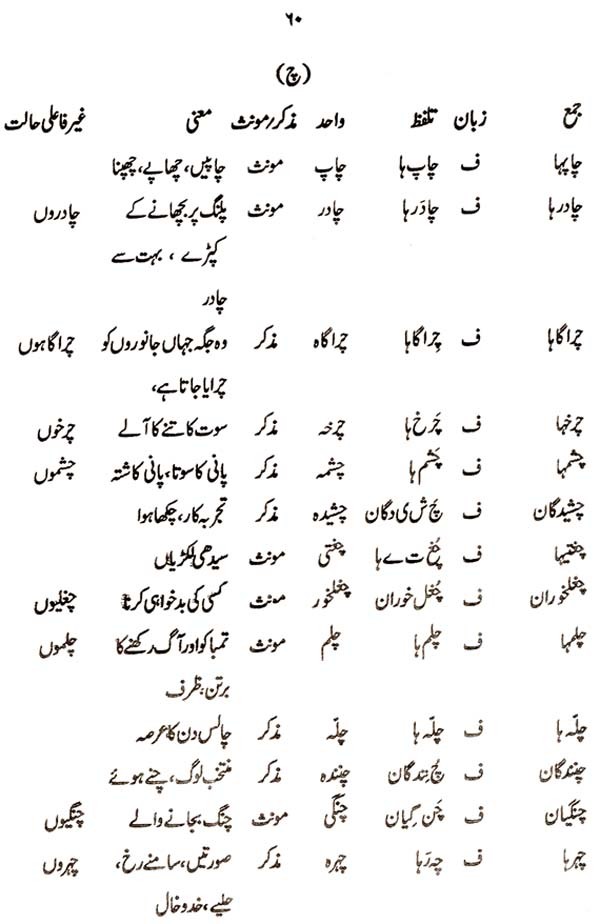 ۶۰
(چ)
جمع زبان تلفظ واحد مذکر/مونث معنی غیر فاعلی حالت
چاپہا ف چاپ ہا چاپ مونث چاپیں، چھاپے، چھپنا
چادرہا ف چادَر ہا چادر مونث پلنگ پر بچھانے کے چادروں
کپڑے ، بہت سے
چادر
چراگاہا ف چِراگاہا چراگاہ مذکر وہ جگہ جہاں جانوروں کو چراگاہوں
چرایا جاتا ہے،
چرخہا ف چَرخ ہا چرخہ مذکر سوت کاتنے کا آلے چرخوں
چشمہا ف چشم ہا چشمہ مذکر پانی کا سوتا، پانی کا شتہ چشموں
چشیدگان ف چَ ش ی دگان چشیدہ مذکر تجربہ کار، چکھا ہوا
چغتیہا ف چُغ ت ے ہا چغتی مونث سیدھی لکڑیاں
چغلخوران ف چُغل خوران چغلخور مونث کسی کی بدخواہی کرنا چغلیوں
چلمہا ف چلم ہا چلم مونث تمباکو اور آگ رکھنے کا چلموں
برتن، ظرف
چلّہ ہا ف چلّہ ہا چلّہ مذکر چالس دن کا عرصہ
چنندگان ف چُ نِندگان چنندہ مذکر منتخب لوگ، چنے ہوئے
چنگیان ف چَن گیان چنگی مونث چنگ بجانے والے چنگیوں
چہرہا ف چہ رَہا چہرہ مذکر صورتیں، سامنے رخ، چہروں
حلیے، خدوخال